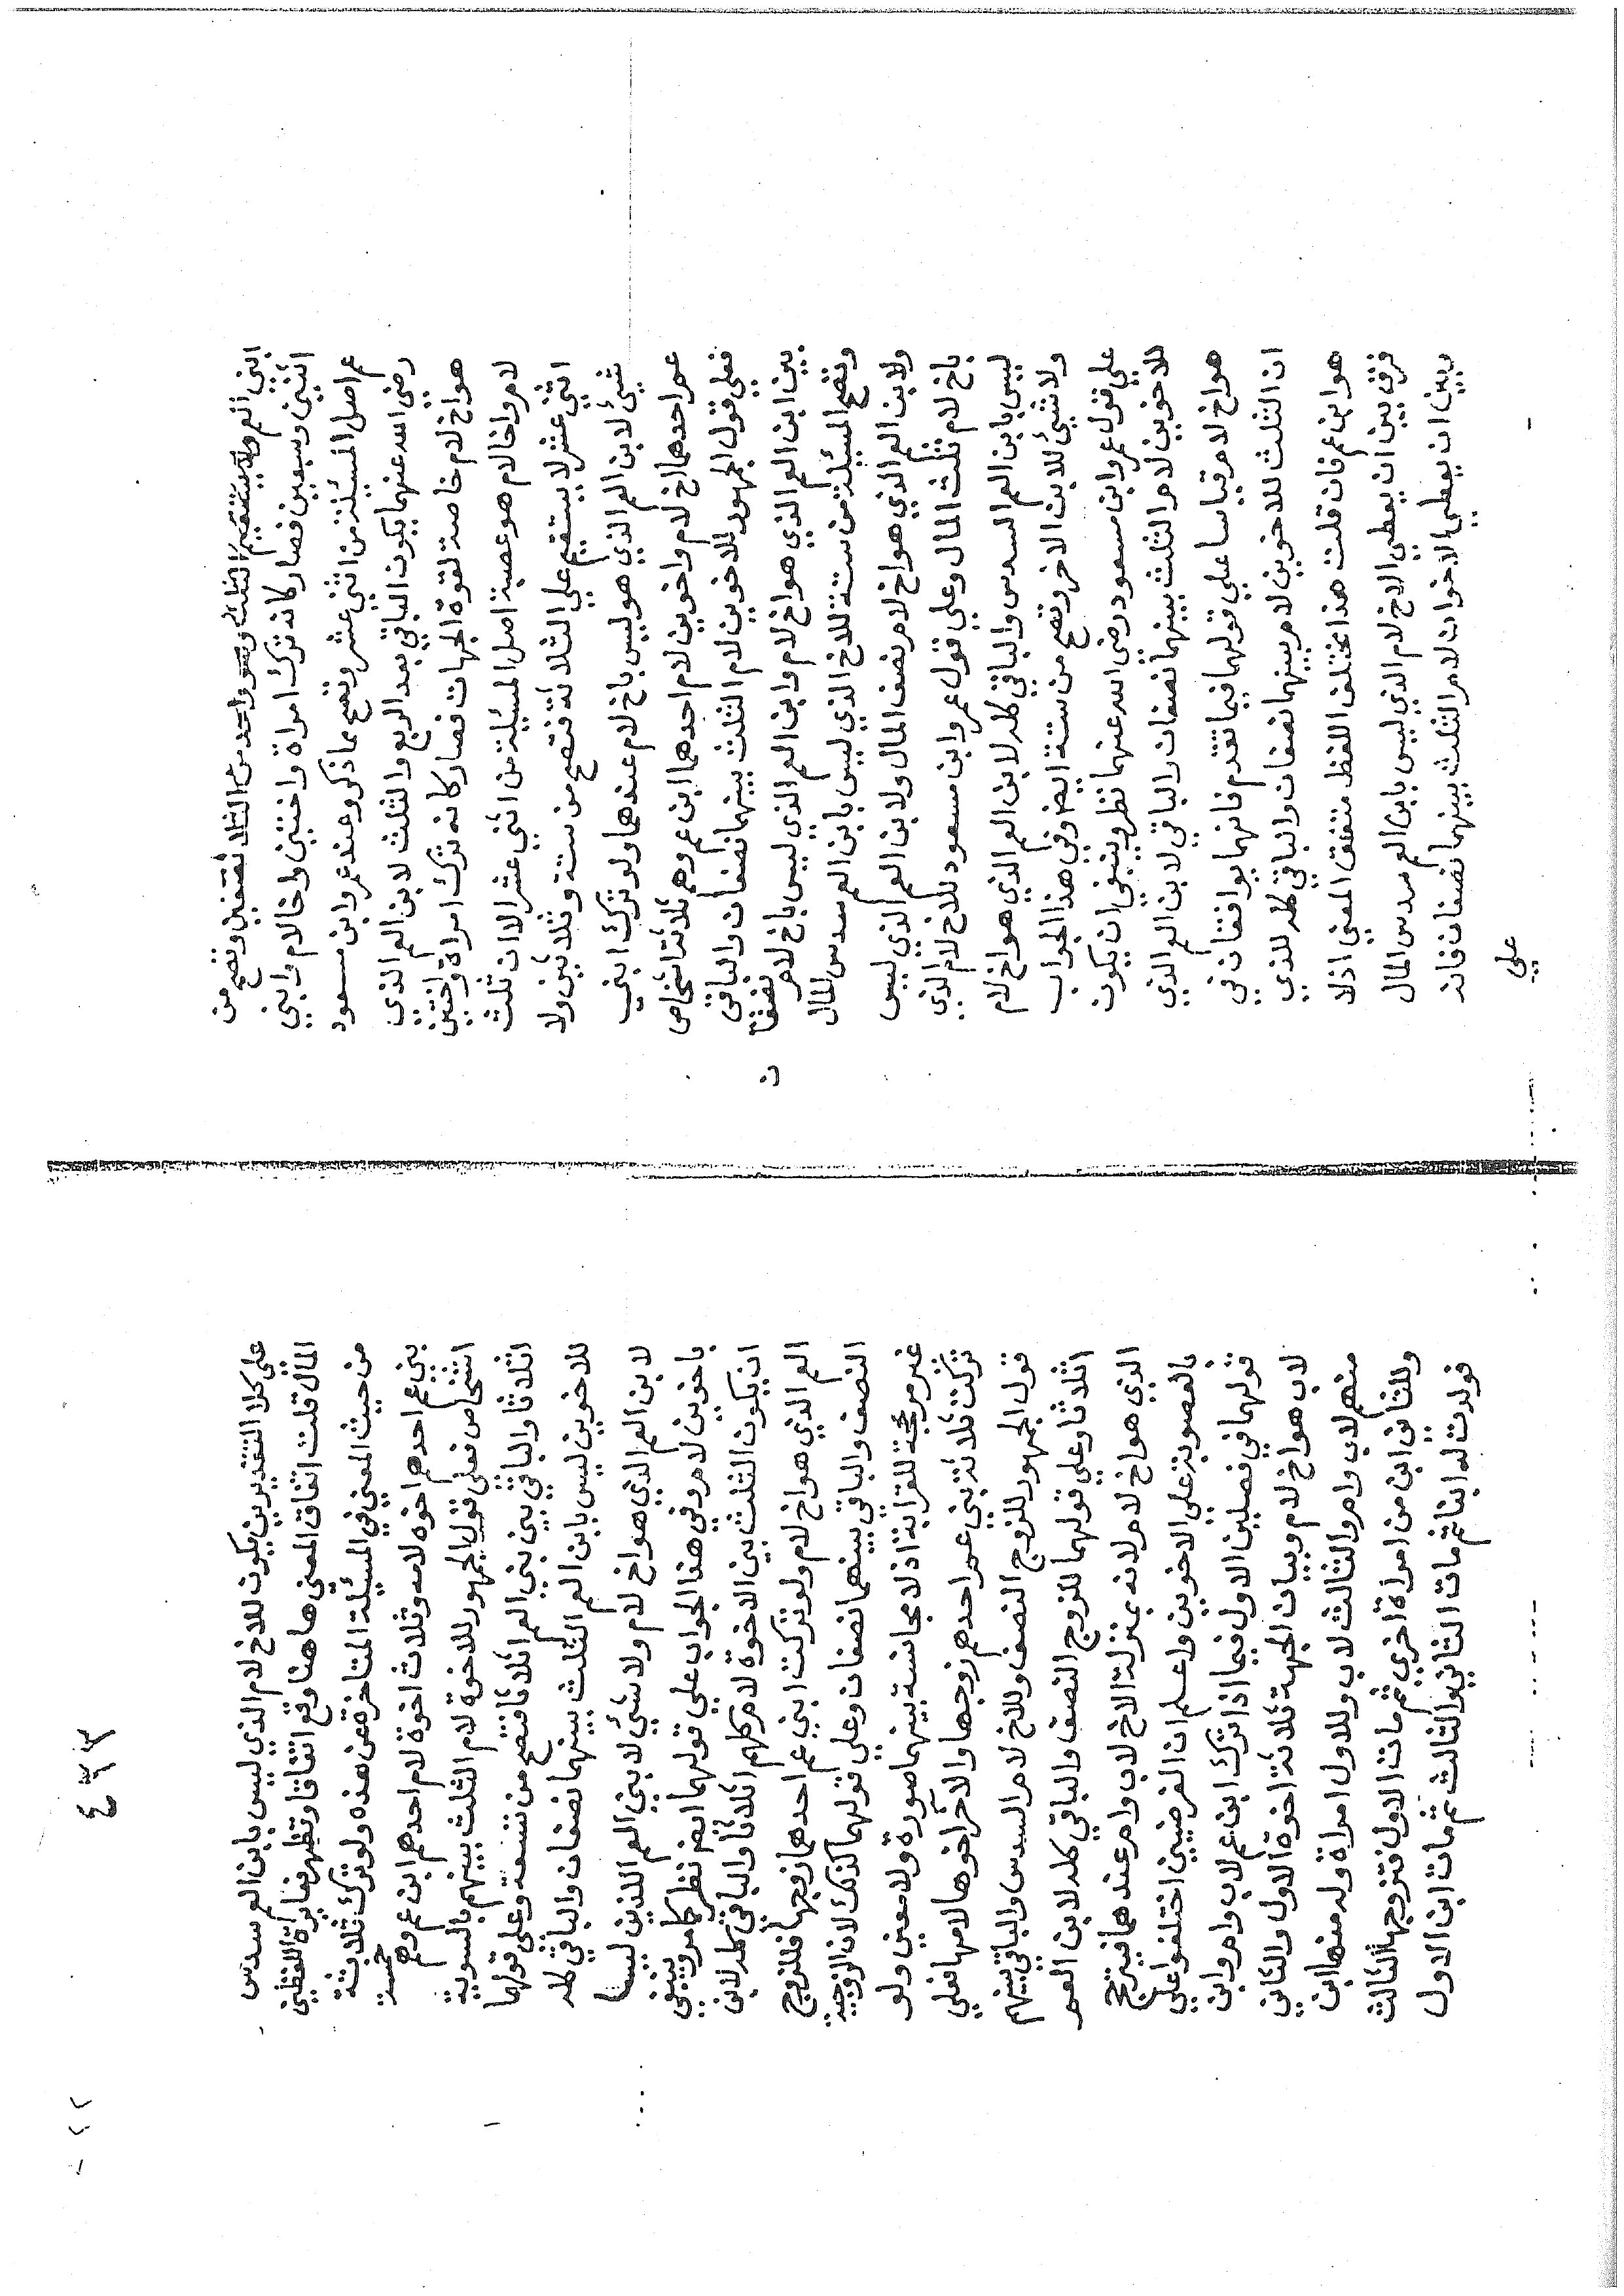 ابني العم ولا يستقيم الثلث وهو واحد من الثلاثة فتصير وتصح من
اثنين وسبعين فصار كانه ترك امراة واختين واخا لام وابني
عم اصل المسئلة من اثني عشر وتصح مما ذكر وعند عمر وابن مسعود
رضي الله عنهما يكون الباقي بعد الربع والثلث لابن العم الذي
هو اخ لام خاصة لقوة الجهات فصار كانه ترك امراة واختين
لام واخا لام هو عصبة اصل المسئلة من اثني عشر الا ان ثلث
اثني عشر لا يستقيم علي الثلاثة فتصح من ستة وثلاثين ولا
شيئ لابن العم الذي هو ليس باخ لام عندهما ولو ترك ابني
عم احدهما اخ لام واخوين لام احدهما ابن عم وهم ثلاثة اشخاص
فعلي قول الجمهور للاخوين لام الثلث بينهما نصفان والباقي
بين ابن العم الذي هو اخ لام وابن العم الذي ليس باخ لام نصفا ن
وتصح المسئلة من ستة للاخ الذي ليس بابن العم سدس المال
ولابن العم الذي هو اخ لام نصف المال ولابن العم الذي ليس
باخ لام ثلث المال وعلي قول عمر وابن مسعود للاخ لام الذي
ليس بابن العم السدس والباقي كله لابن العم الذي هو اخ لام
ولا شيئ للابن الاخر وتصح من ستة ايض وفي هذا الجواب
علي قول عمر وابن مسعود رضي الله عنهما نظر وينبغي ان يكون
للاخوين لام الثلث بينهما نصفان والباقي لابن العم الذي
هو اخ لام قياسا علي قولهما فيما تقدم فانهما يوافقان في
ان الثلث للاخوين لام بينهما نصفان والباقي كله للذي
هو ابن عم فان قلت هذا مختلف اللفظ متفق المعني اذ لا
فرق بين ان يعطي الاخ لام الذي ليس بابن العم سدس المال
وبين ان يعطي الاخوان لام الثلث بينهما نصفان فانه
علي
٤٣٣
علي كلا التقديرين يكون للاخ لام الذي ليس بابن العم سدس
المال قلت اتفاق المعني هاهنا وقع اتفاقا وتظهر مغايرة اللفظين
من حيث المعني في المسئلة المتاخرة عن هذه ولو ترك ثلاثة
بني عم احدهم اخوه لامه وثلاث اخوة لام احدهم ابن عم وهم خمسة
اشخاص فعلي قول الجمهور للاخوة لام الثلث بينهم بالسوية
اثلاثا والباقي بين بني العم اثلاثا فتصح من تسعة وعلي قولهما
للاخوين ليس بابن العم الثلث بينهما نصفان والباقي كله
لابن العم الذي هو اخ لام ولا شيئ لابني العم اللذين ليسا
باخوين لام وفي هذا الجواب علي قولهما ايض نظر كما مر وينبغي
ان يكون الثلث بين الاخوة لام كلهم اثلاثا والباقي كله لابن
العم الذي هو اخ لام ولو تركت ابني عم احدهما زوجها فللزوج
النصف والباقي بينهما نصفان وعلي قولهما كذلك لان الزوجية
غير مرجحة للقرابة اذ لا مجانسة بينهما صورة ولا معني ولو
تركت ثلاثة بني عم احدهم زوجها والاخر اخوها لامها فعلي
قول الجمهور للزوج النصف وللاخ لام السدس والباقي بينهم
اثلاثا وعلي قولهما للزوج النصف والباقي كله لابن العم
الذي هو اخ لام لانه بمنزلة الاخ لاب وام عندهما فيترجح
بالعصوبة علي الاخوين واعلم ان الفرضيين اختلفوا علي
قولهما في فصلين الاول فيما اذا ترك ابن عم لاب وام وابن
لاب هو اخ لام وبيان الجهة ثلاثة اخوة الاول والثاني
منهم لاب وام والثالث لاب وللاول امراة وله منها ابن
وللثاني ابن من امراة اخري ثم مات الاول فتزوجها الثالث
فولدت له ابنا ثم مات الثاني والثالث ثم مات ابن الاول